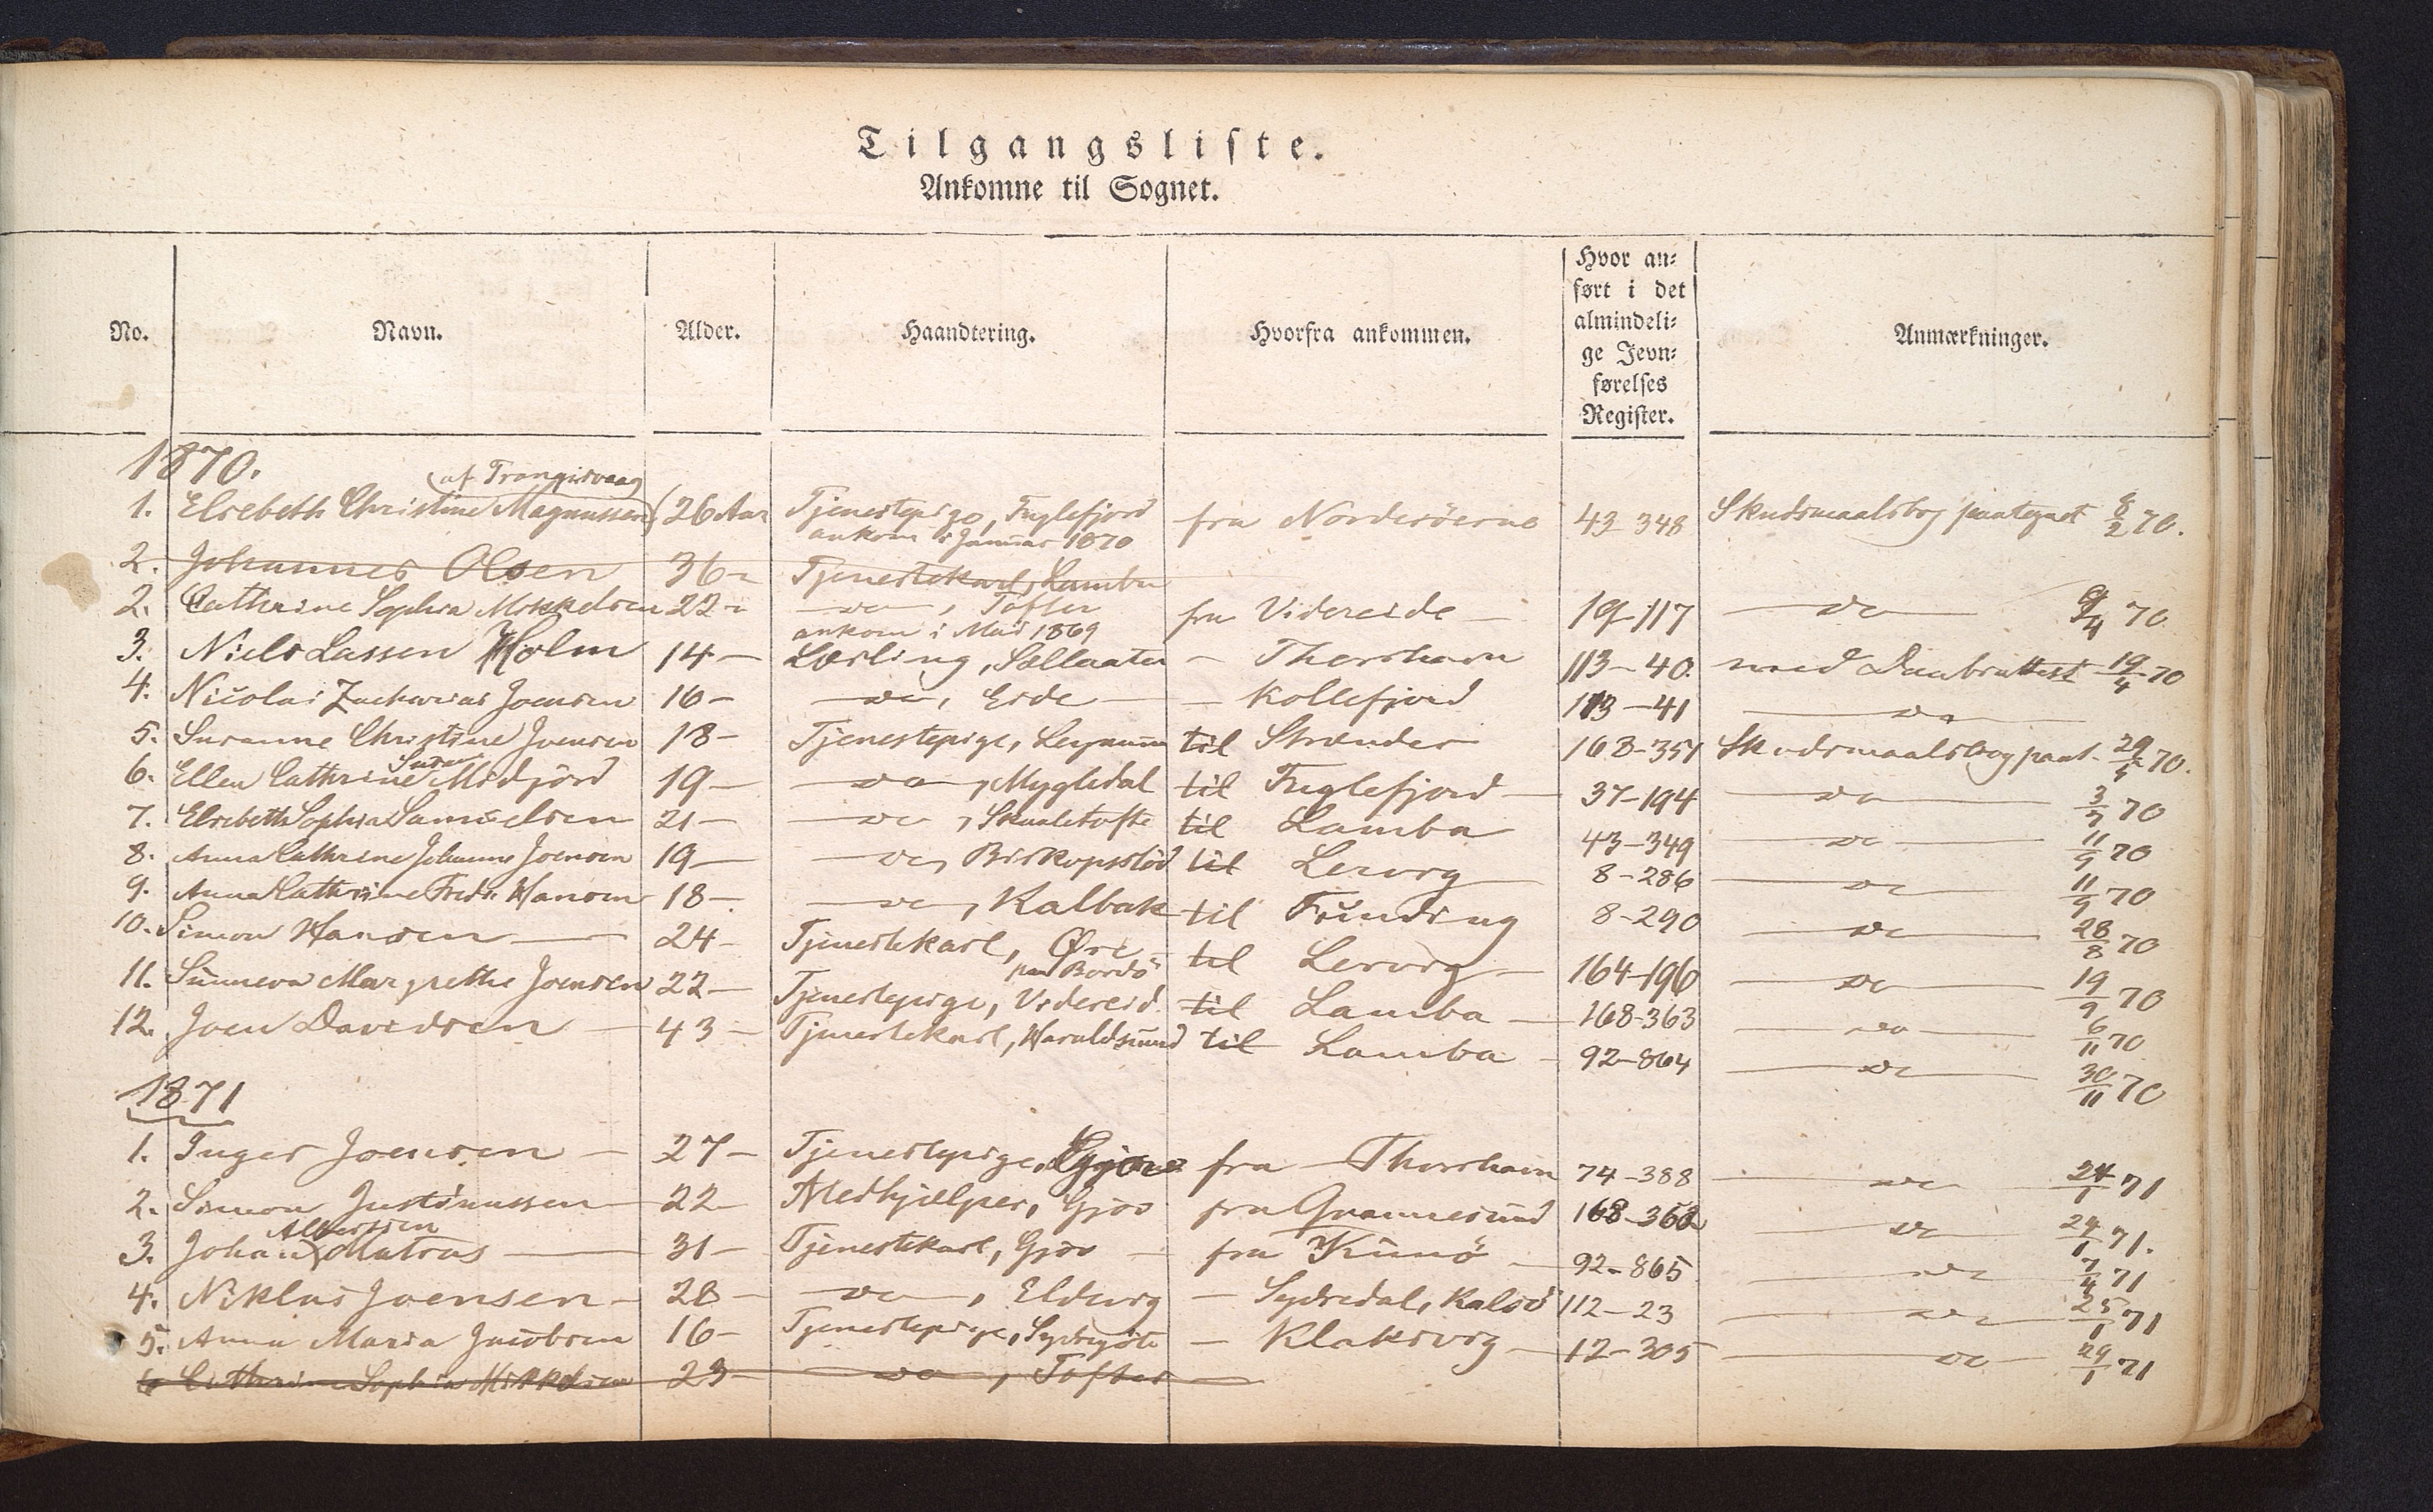 Tilgangsliste.
Ankomne til Sognet.
No. Navn. Alder. Haandtering. Hvorfra ankommen. Hvor an-ført i det almindeli-ge Jevn-førelses Register. Anmærkninger.
1870.
(af Trangisvaag)
1. Elsebeth Christine Magnussen 26 Aar Tjenestepige, Fuglefjord fra Norderöerne 43-348 Skudsmaalsbog paategnet 8/2 70.
ankom i Januar 1870
2. Johannes Olsen 36- Tjenestekarl, Lamba
2. Cathrine Sophia Mikkelsen 22- do, Tofter fra Videreide 19-117 do 9/4 70
ankom i Mai 1869
3. Niels Lassen Holm 14- Lærling, Sællaater - Thorshavn 113-40. med Daabsattest 19/4 70
4. Nicolai Zacharias Joensen 16- do, Eide - Kollefjord 113-41 do
5. Susanne Christine Joensen 18- Tjenestepige, Leynum til Strænder 168-351 Skudsmaalsbog paat. 29/5 70.
6. Ellen Cathrine Midjord 19- do, Mygledal til Fuglefjord 37-194 do 3/7 70
7. Elsebeth Sophia Samuelsen 21- do, Skaaletofte til Lamba 43-349 do 11/9 70
8. Anna Cathrine Johanne Joensen 19- do, Biskopsstöd til Lervig 8-286 do 11/9 70
9. Anna Cathrine Fredr. Hansen 18- do, Kalbak til Funding 8-290 do 28/8 70
10. Simon Hansen 24- Tjenestekarl, Øre til Lervig 164-196 do 19/9 70
paa Bordö
11. Sunneva Margrethe Joensen 22- Tjenestepige, Videreid. til Lamba 168-363 do 6/11 70
12. Joen Davidsen 43- Tjenestekarl, Haraldsund til Lamba 92-864 do 30/11 70
1871
1. Inger Joensen 27- Tjenestepige, Gjov fra Thorshavn 74-388 do 24/1 71
2. Simon Justinussen 22- Medhjælper, Gjov fra Qvannesund 168-362 do 24/1 71.
Albertsen
3. Johan Matras 31- Tjenestekarl, Gjov fra Kunö 92-865 do 7/4 71
4. Niklas Joensen 28- do, Eldevig - Sydredal, Kalsö 112-23 do 25/1 71
5. Anna Maria Jacobsen 16- Tjenestepige, Sydregöte - Klaksvig 12-305 do 29/1 71
6 Cathrine Sophia Mikkelsen 23- do, Tofter